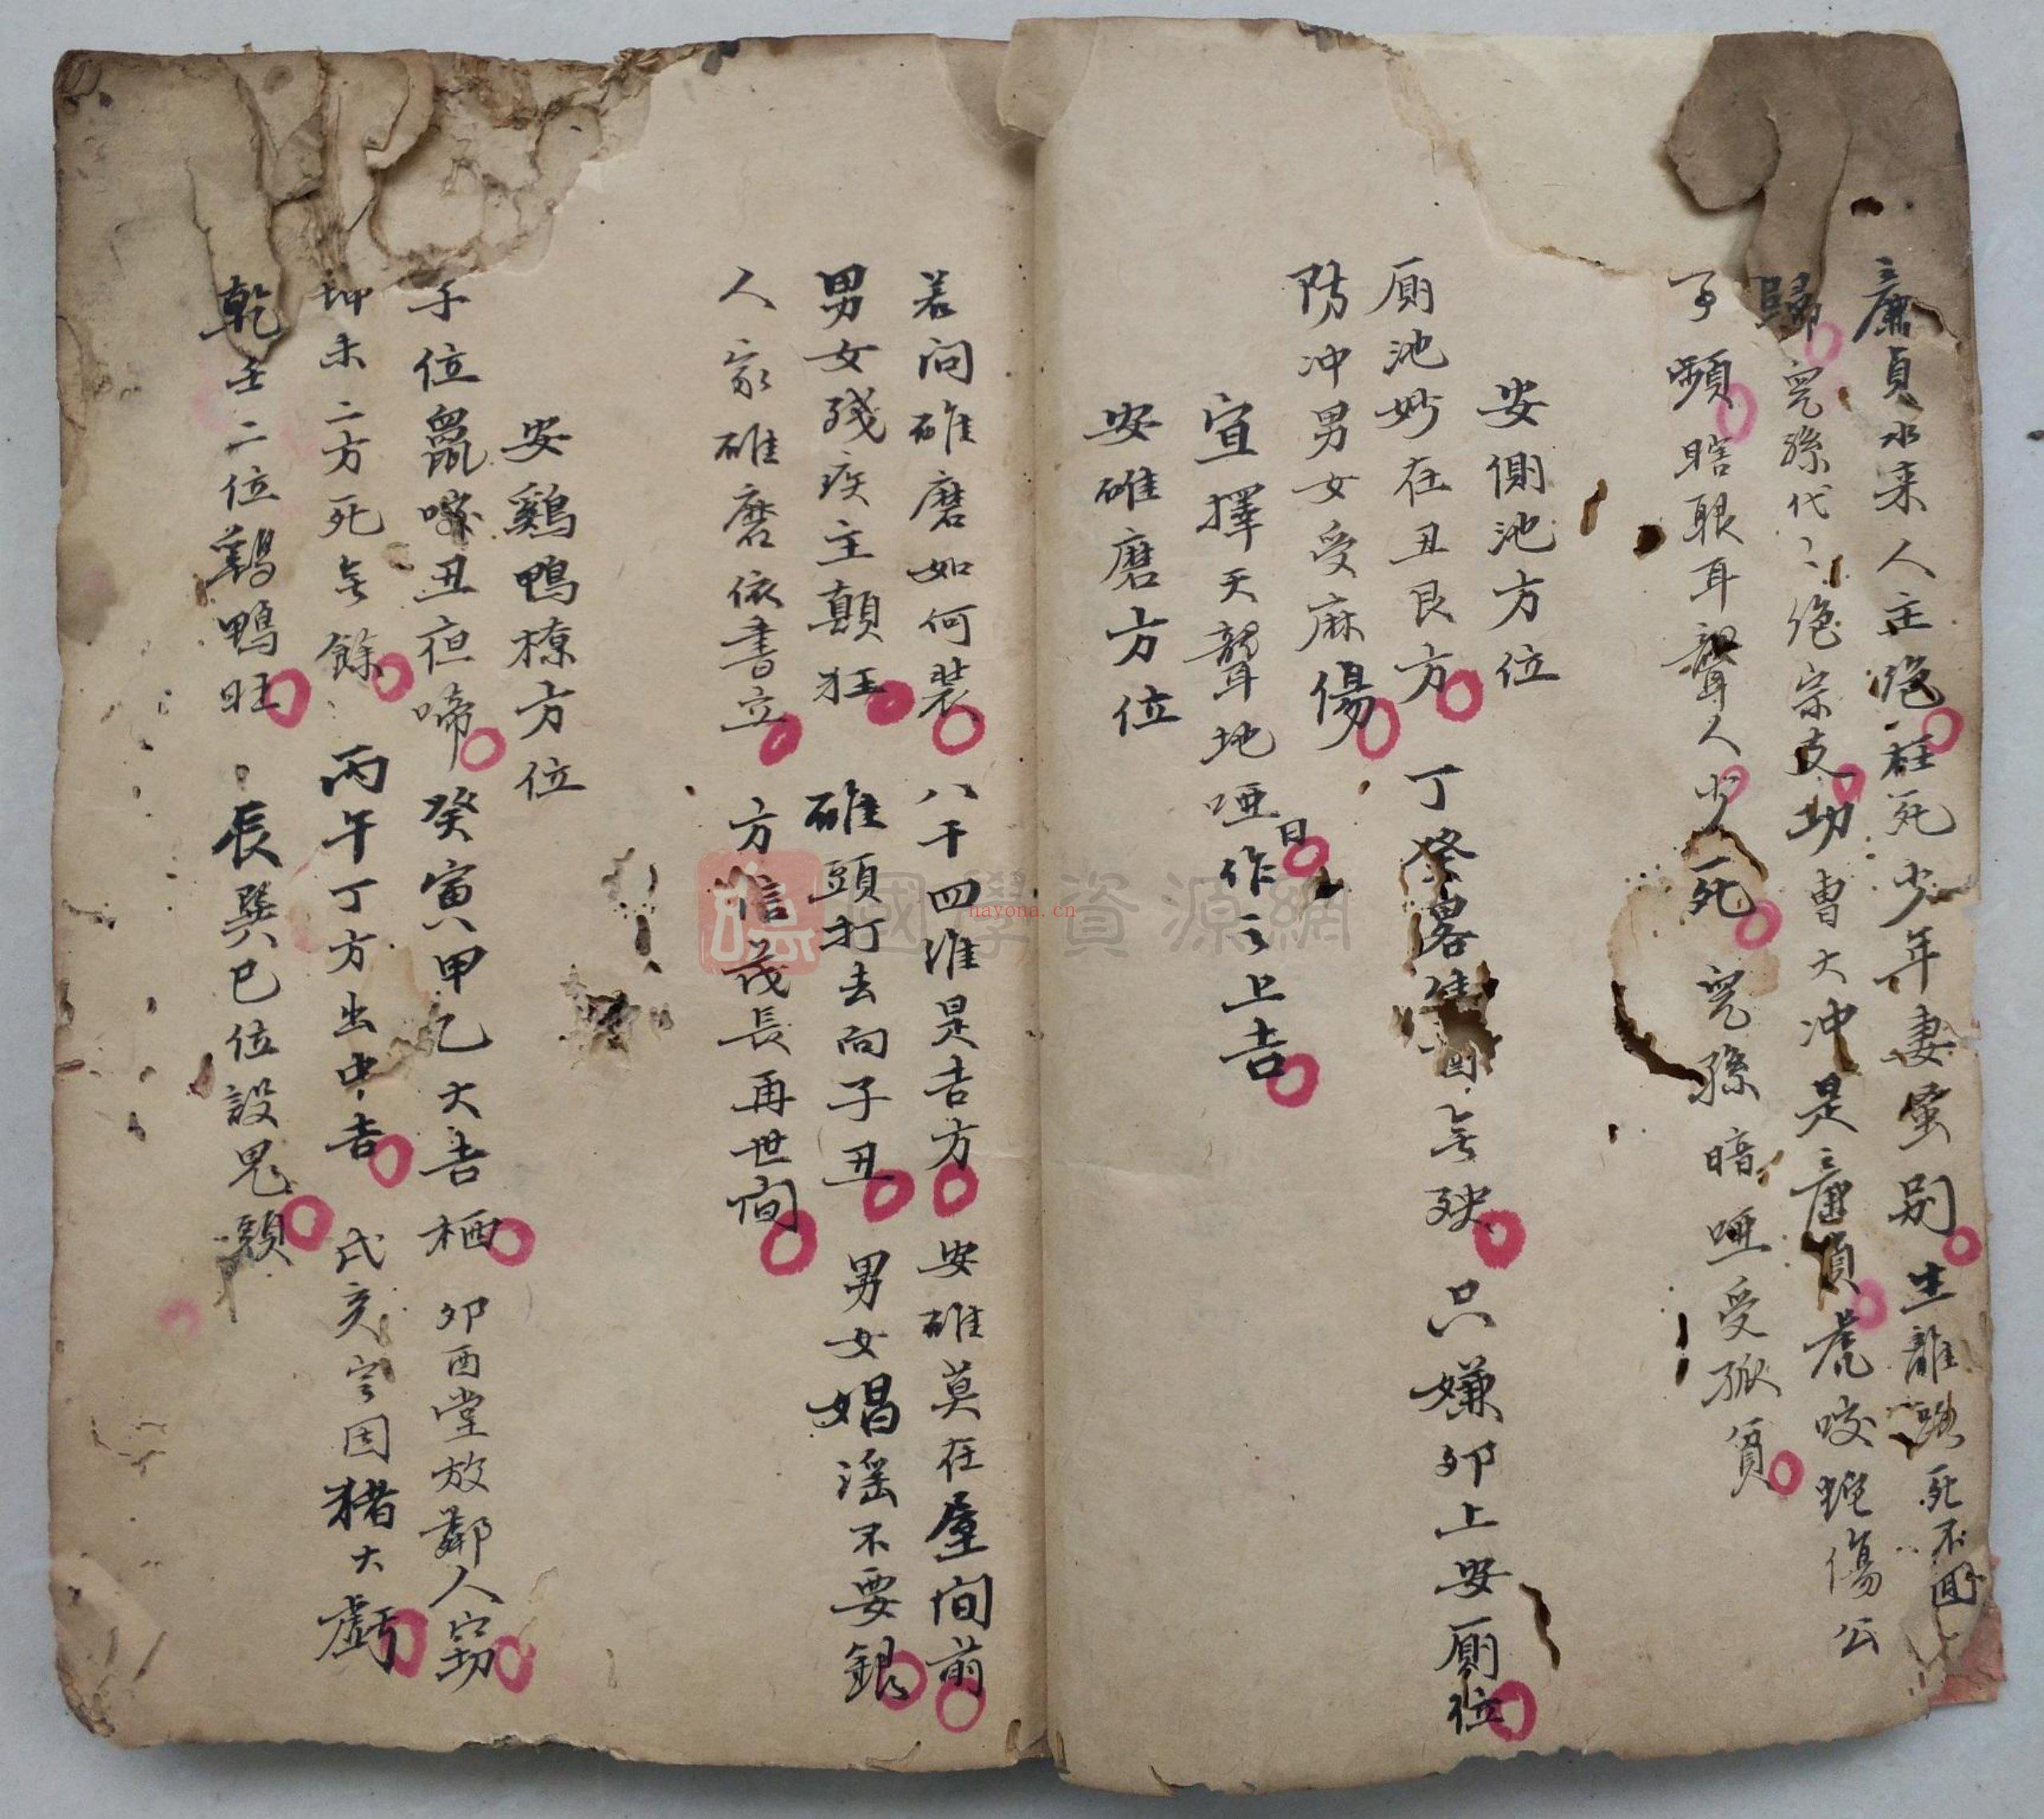 廉貞水来人主絶枉死少年妻蛮别生離路死不回
歸児孫代〻絶宗支功曹大冲是廉貞虎咬蛇傷公
子頻瞎眼耳聾人少死児孫暗啞受孤貧
安側池方位
厠池妙在丑艮方丁癸畧無殃只嫌卯上安厠位
防冲男女受麻傷
宣擇天聾地啞日作之上吉
安碓磨方位
若问碓磨如何装八干四维是吉方安碓莫在屋间前
男女殘疾主顛狂碓頭打去向子丑男女娼滛不要銀
人家碓磨依書立方信茂長再世间
安鷄鴨橑方位
子位鼠咬丑夜啼癸寅甲乙大吉栖卯酉堂放鄰人窃
坤未二方死无餘丙午丁方出中吉戌亥宫因猪大虧
乾壬二位鷄鴨旺辰巽巳位設見頭
國學資源網
nayona.cn